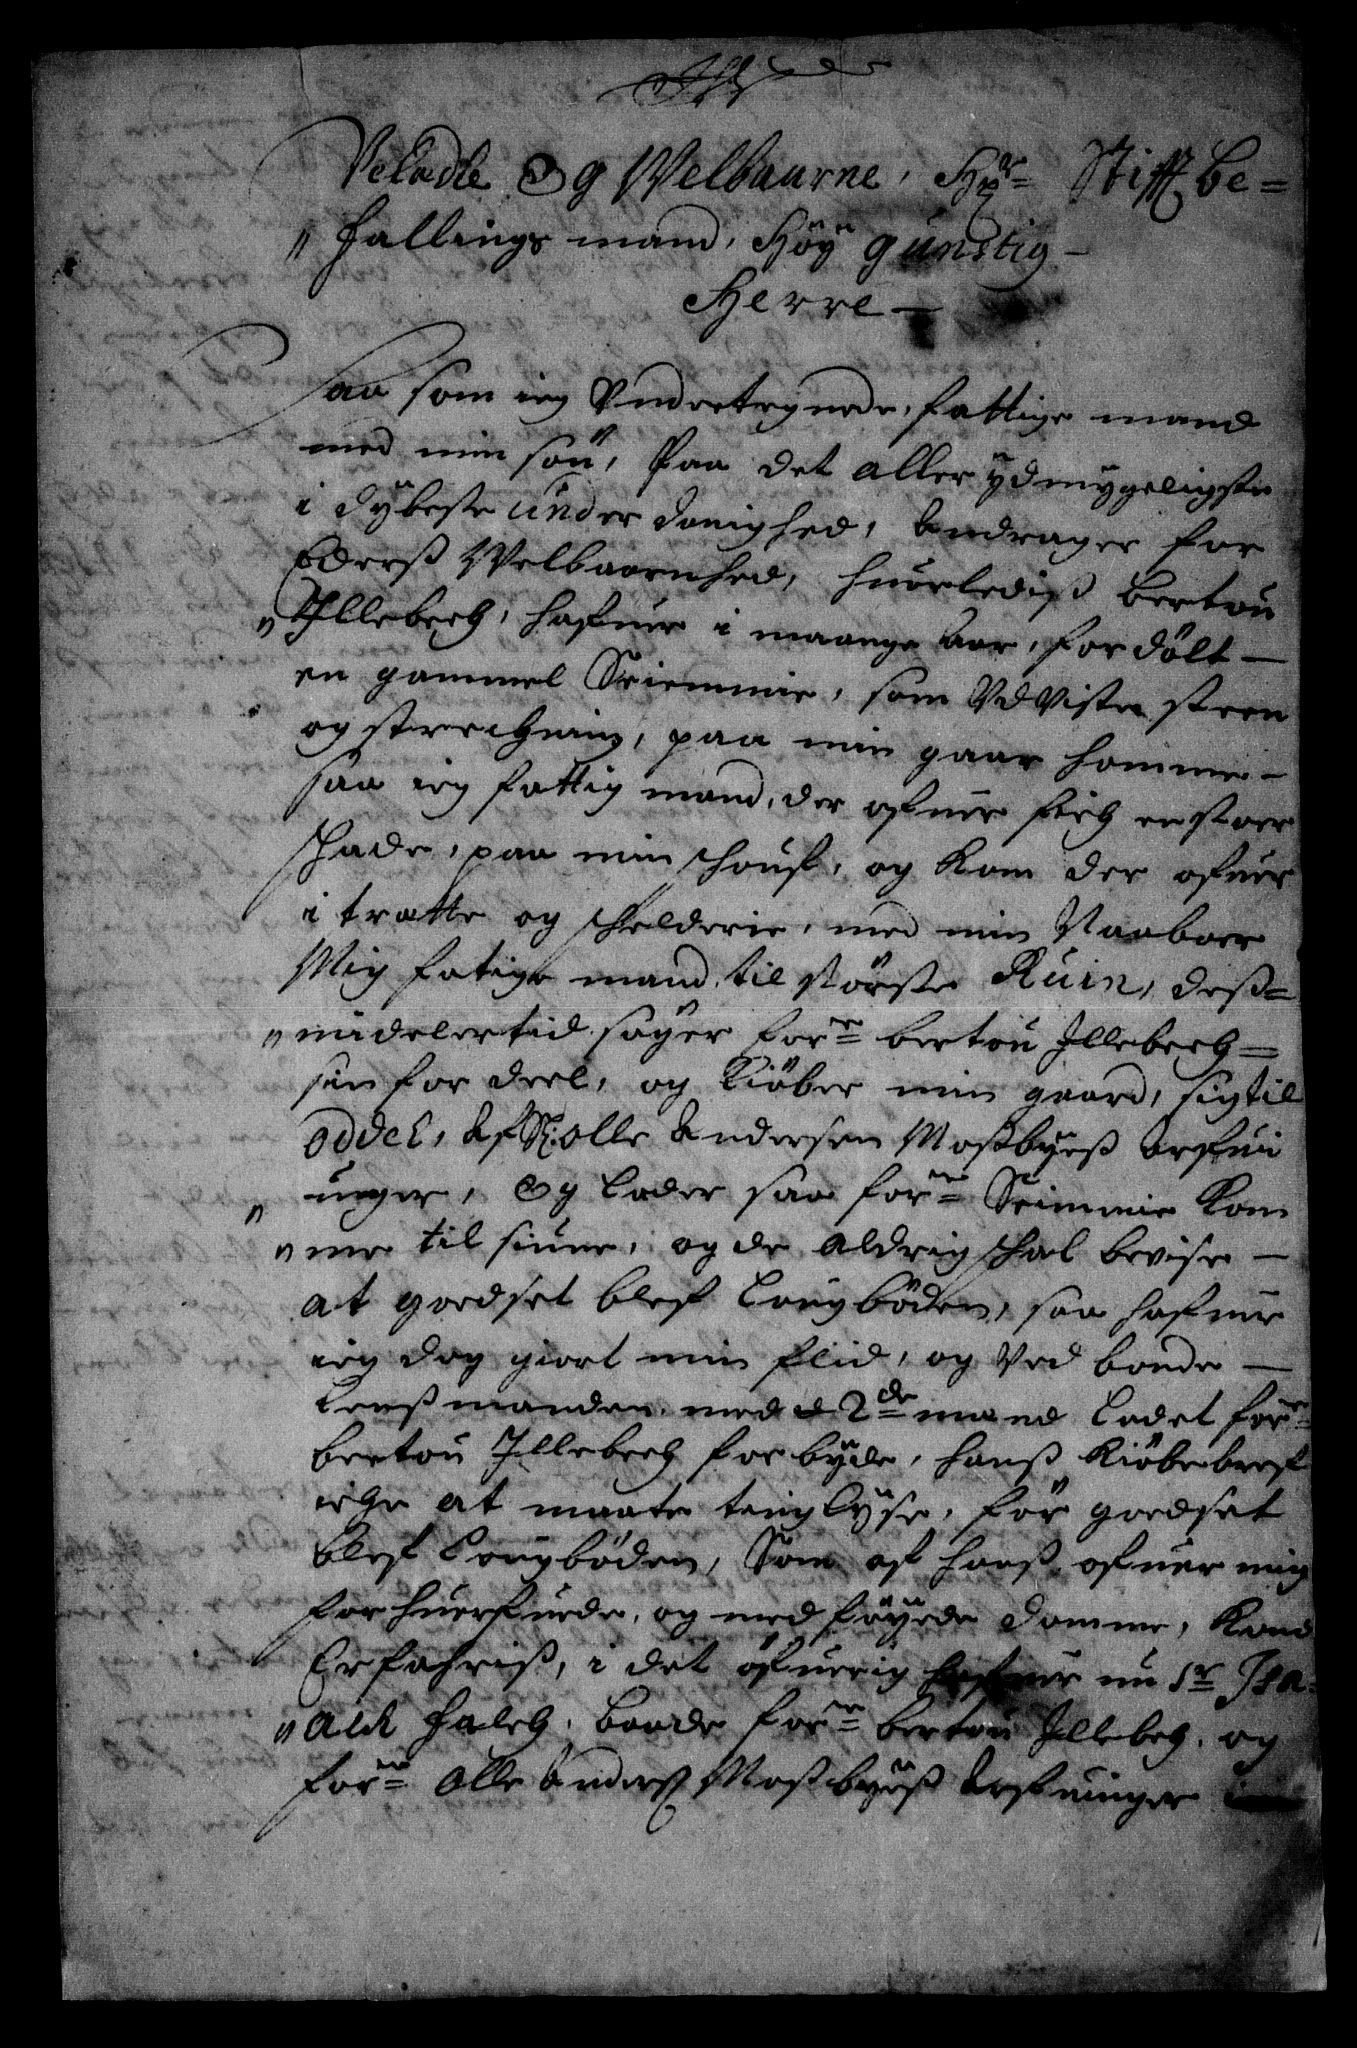 Veledle Og Welbaarne, Hr= Stifft be=
„ fallings mand, Höy gunstig –
Herre –
Saa som ieg Vnderteignede, fattige mand
med min søn, Paa det aller ydmygeligste
i dybeste underdanighed, andrager for
Ederß Welbaarenhed, huorlediß bertou
„ Jllebech, hafuer i maange aar, fordölt –
en gammel Skiemmie, som Vdviste steen
og strechning, paa min gaar homme –
saa ieg fattig mand, der ofuer fich en stoer
schade, paa min schouf, og kom der ofuer
i trætte og schelderie, med min Naaboer
Mig fatige mand, til störste Ruin, deß=
„ midelertid søger forne= bertou Jllebech –
sin for deel, og kiöber min gaard, sig til
oddel, af Sl: olle Andersen Moßbyeß arfui
„ inger, Og lader saa forne= Skimmie kom
„ me til siune, og de aldrig schal bevise –
at goedset blef Lougböden, saa hafuer
ieg dog giort min flid, og Ved bonde –
Lenßmanden, med d 2de mænd ladet forne=
bertou Jllebech forbyde, hanß kiöbebref
iche at maate tinglyse, för goedset
blef Lougböden, Som af hanß ofuer mig
forhuerfuede, og med föyede domme, kand
Erfahriß, i det öfuerig hafuer nu Sr= Jsa=
„ ack falch, baade forne= bertou Jllebech, og
forne= Olle Anderß Moßbyeß arfuinger